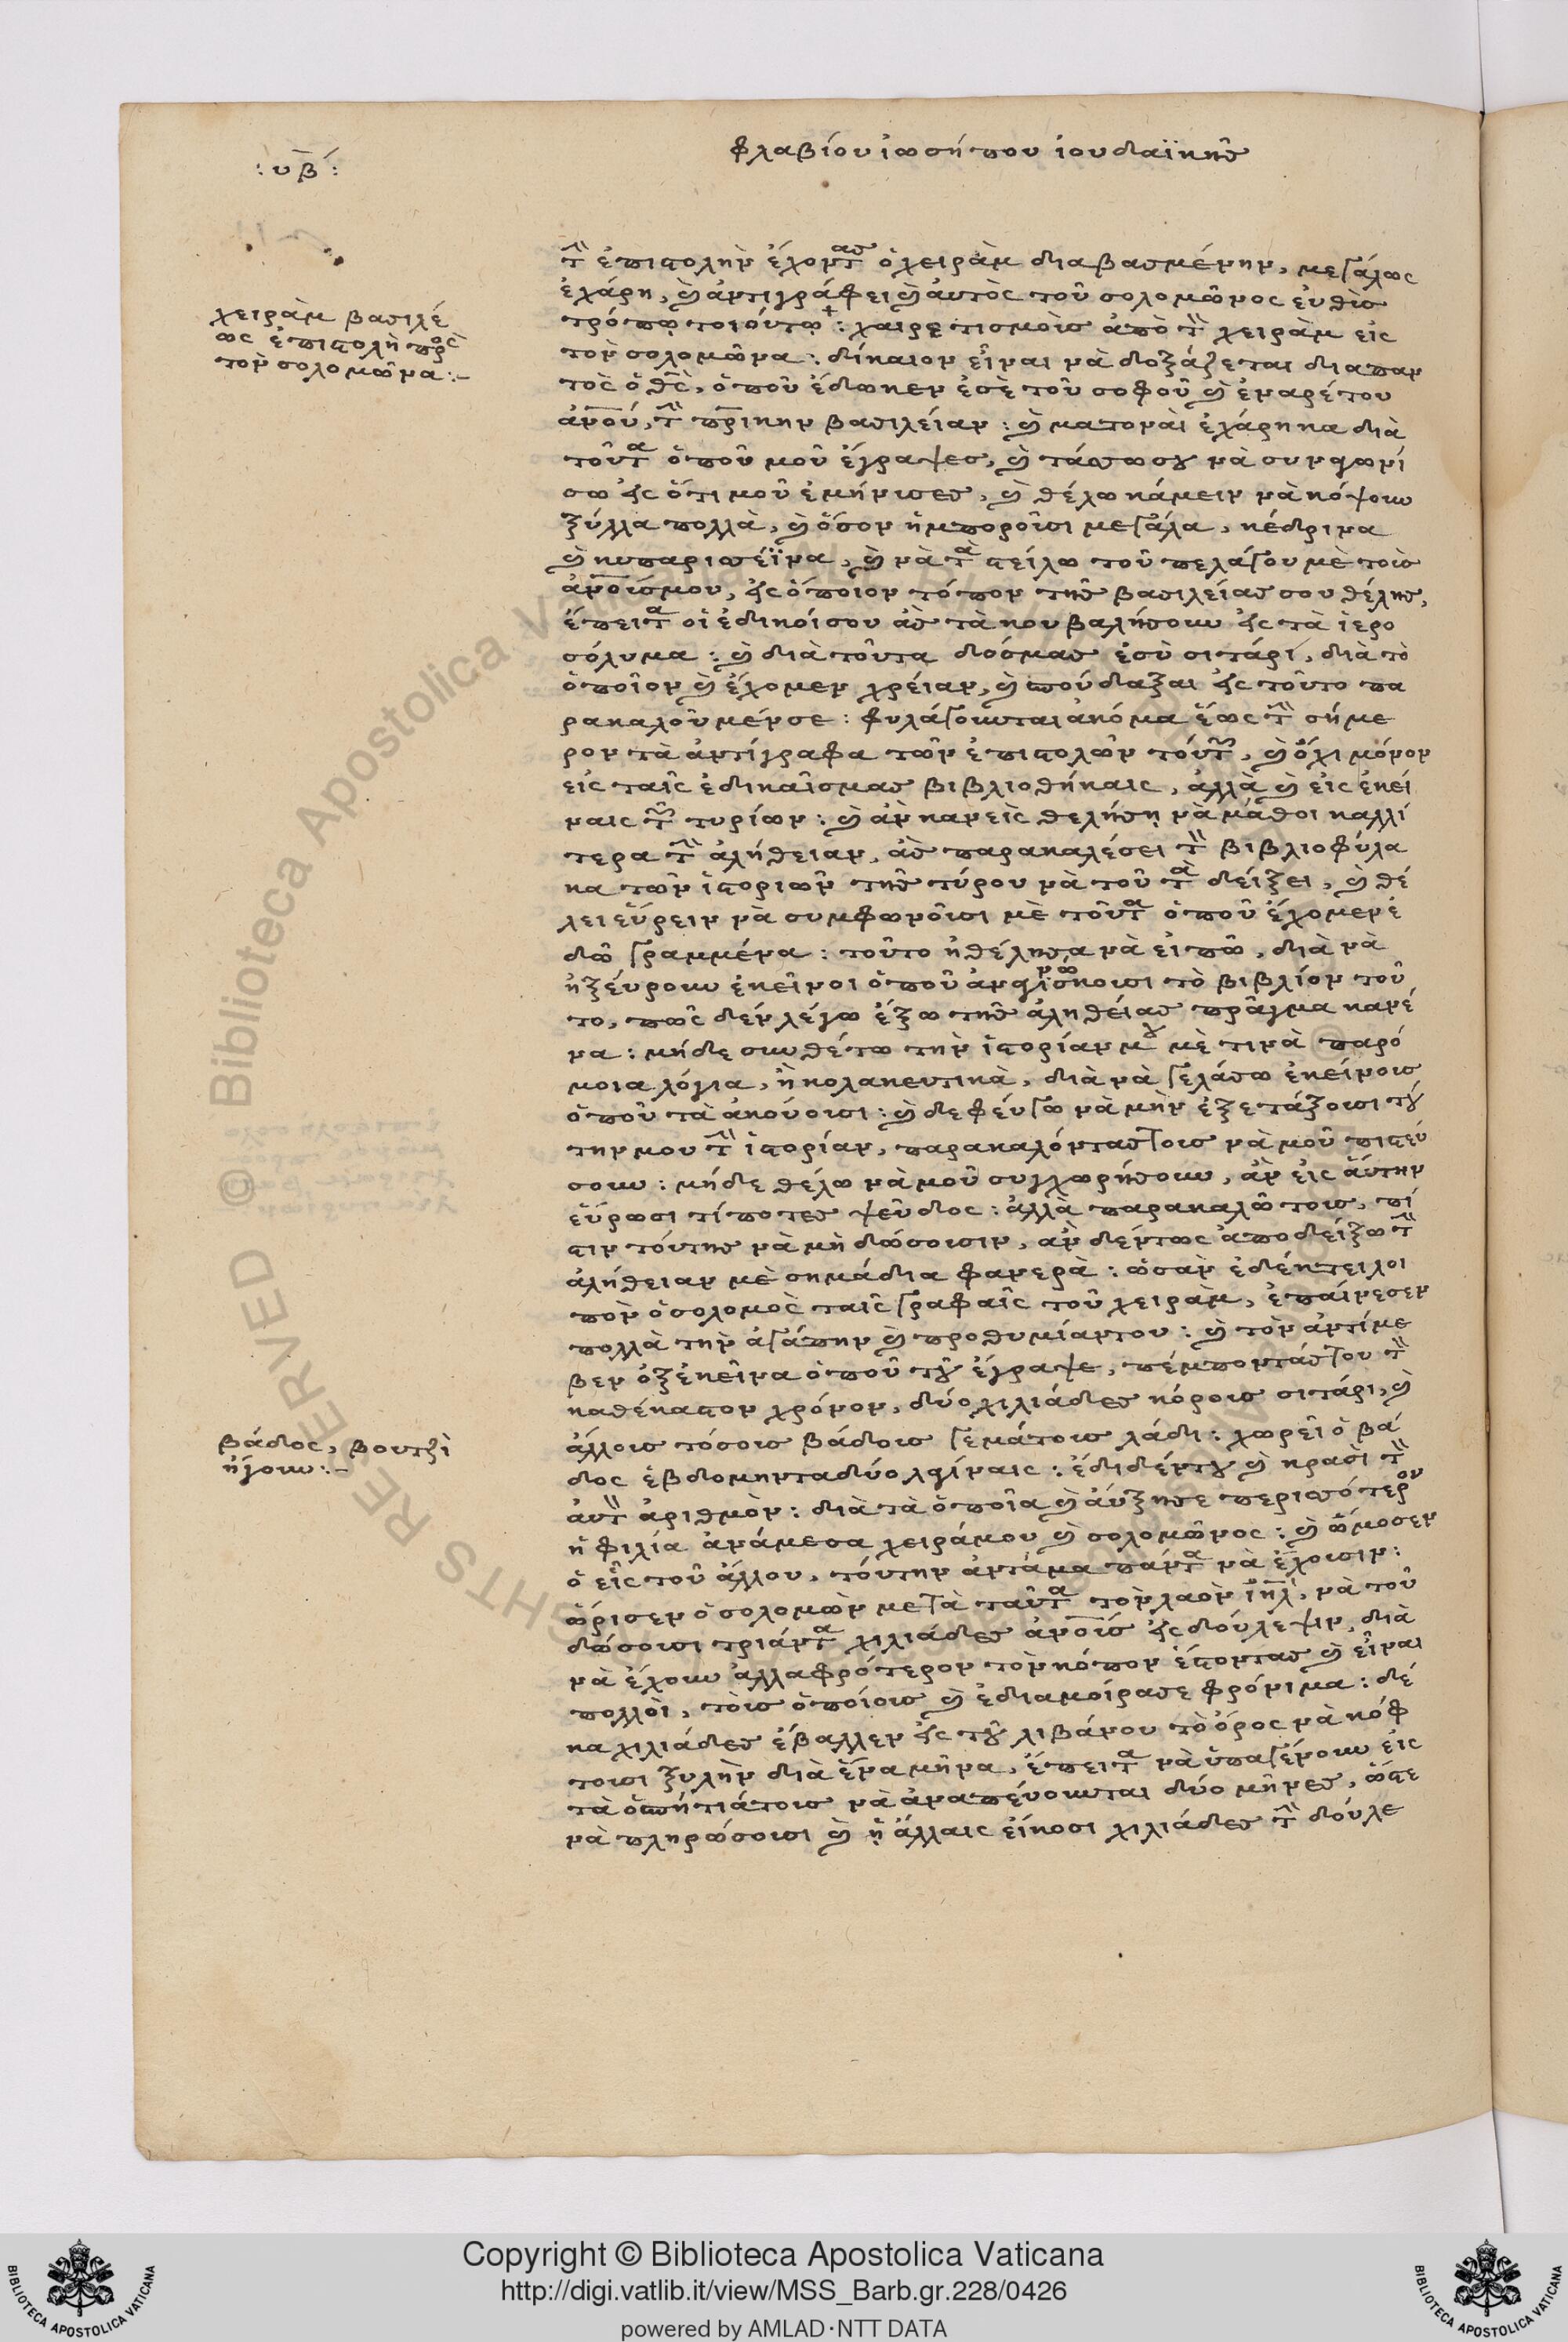 φλαβίου ἰωσήπου ἰουδαϊκῆς
:υβ:
τὴν ἐπιστολὴν ἔχοντας ὁ χειρὰμ διαβασμένην, μεγάλως
ἐχάρη, καὶ ἀντιγράφει καὶ ἀυτὸς τοῦ σολομῶνος ἐυθὺς
τρόπῳ τοιούτῳ: χαιρετισμοὶς ἀπὸ τὸν χειρὰμ εἰς
τὸν σολομῶνα: δίκαιον εἶναι νὰ δοξάζεται διαπαν
τὸς ὁ θς, ὁποῦ ἔδωκεν ἐσὲ τοῦ σοφοῦ καὶ ἐναρέτου
ἀνού, τὴν πρικην βασιλείαν: καὶ ματοναὶ ἐχάρηκα διὰ
τοῦτα ὁποῦ μοῦ ἔγραψες, καὶ τάσσω σου νὰ συνφωνί
σω εἰς ὅτι μοῦ ἐμήνισες, καὶ θέλω κάμειν νὰ κόψουν
ξύλλα πολλὰ, καὶ ὅσον ἠμποροῦσι μεγάλα, κέδρινα
καὶ κυπαρισσέϊνα, καὶ νὰ τὰ στείλω τοῦ πελάγου μὲ τοὺς
ἀνούσμου, εἰς ὅποιον τόπον τῆς βασιλείας σου θέλης,
ἔπειτα οἱ ἐδικοίσου ἂς τὰ κουβαλήσουν εἰς τὰ ἱερο
σόλυμα: καὶ διὰ τοῦτα δοόσμας ἐσὺ σιτάρι, διὰ τὸ
ὁποῖον καὶ ἔχομεν χρείαν, καὶ σπούδαξαι εἰς τοῦτο πα
ρακαλοῦμένσε: φυλάγουνται ἀκόμα ἕως τὴν σήμε
ρον τὰ ἀντίγραφα τῶν ἐπιστολῶν τούτων, καὶ ὄχι μόνον
εἰς ταῖς ἐδικαῖσμας βιβλιοθήκαις, ἀλλὰ καὶ εἰς ἐκεί
ναις τῶν τυρίων: καὶ ἂν κανεὶς θελήσῃ νὰ μάθοι καλλί
τερα τὴν ἀλήθειαν, ἂς παρακαλέσει τὸν βιβλιοφύλα
κα τῶν ἱστοριῶν τῆς τύρου νὰ τοῦ τὰ δείξει, καὶ θέ
λει εὕρειν νὰ συμφωνοῦσι μὲ τοῦτα ὁποῦ ἔχομεν ἐ
δῶ γραμμένα: τοῦτο ἠθέλησα νὰ εἰπῶ, διὰ νὰ
ἠξέυρουν ἐκεῖνοι ὁποῦ ἀναγινώσκουσι τὸ βιβλίον τοῦ
το, πῶς δὲν λέγω ἔξω τῆς ἀληθείας πρᾶγμα κανέ
να: μήδε συνθέτω τὴν ἱστορίαν μου μὲ τινὰ παρό
μοια λόγια, ἢ κολακευτικὰ, διὰ νὰ γελάσω ἐκείνους
ὁποῦ τὰ ἀκούουσι: καὶ δε φέυγω νὰ μὴν ἐξετάξουσι τού
την μου τὴν ἱστορίαν, παρακαλόντας τους νὰ μοῦ πιστέυ
σουν: μήδε θέλω νὰ μοῦ συγχωρήσουν, ἂν εἰς ἀύτην
εὕρωσι τίποτες ψεῦδος: ἀλλὰ παρακαλῶ τους, πί
στιν τούτης νὰ μὴ δώσουσιν, ἂν δέντως ἀποδείξω τὴν
ἀλήθειαν μὲ σημάδια φανερὰ: ὡσὰν ἐδέκτει λοι
πὸν ὁ σολομὸς ταῖς γραφαῖς τοῦ χειρὰμ, ἐπαίνεσεν
πολλὰ τὴν ἀγάπην καὶ προθυμίαντου: καὶ τὸν ἀντίμε
βεν ὀξ ἐκεῖνα ὁποῦ τοῦ ἔγραψε, πέμποντάςτου τὸν
καθέκαστον χρόνον, δύο χιλιάδες κόρους σιτάρι, καὶ
ἄλλους τόσους βάδους γεμάτους λάδι: χωρεῖ ὁ βά
δος ἑβδομηνταδύο λγίναις: ἐδιδέντου καὶ κρασὶ τὸν
ἀυτὸν ἀριθμὸν: διὰ τὰ ὁποῖα καὶ ἀύξησε περισσότερον
ἡ φιλία ἀνάμεσα χειράμου καὶ σολομῶνος: καὶ ὤμοσεν
ὁ εἷς τοῦ ἄλλου, τούτην ἀντάμα πάντα νὰ ἔχουσιν:
ὥρισεν ὁ σολομὼν μετὰ ταῦτα τὸν λαὸν ιηλ, νὰ τοῦ
δώσουσι τριάντα χιλιάδες ἀνούς εἰς δούλεψιν, διὰ
νὰ ἔχουν ἀλλαφρότερον τὸν κόπον ἔστοντας καὶ εἶναι
πολλοὶ, τοὺς ὁποίους καὶ ἐδιαμοίρασε φρόνιμα: δέ
κα χιλιάδες ἔβαλλεν εἰς τοῦ λιβάνου τὸ ὄρος νὰ κόφ
τουσι ξυλὴν διὰ ἕνα μῆνα, ἔπειτα νὰ ὑπαγένουν εἰς
τὰ ὁσπήτιάτους νὰ ἀναπέυουνται δύο μῆνες, ὥστε
νὰ πληρώσουσι καὶ ᾑ ἄλλαις εἴκοσι χιλιάδες τὴν δούλε
χειρὰμ βασιλέ
ως ἐπιστολὴ πρὸς
τὸν σολομῶνα:-
βάδος, βουτζὶ
ἤγουν:-
Copyright © Biblioteca Apostolica Vaticana
http://digi.vatlib.it/view/MSS_Barb.gr.228/0426
powered by AMLAD·NTT DATA